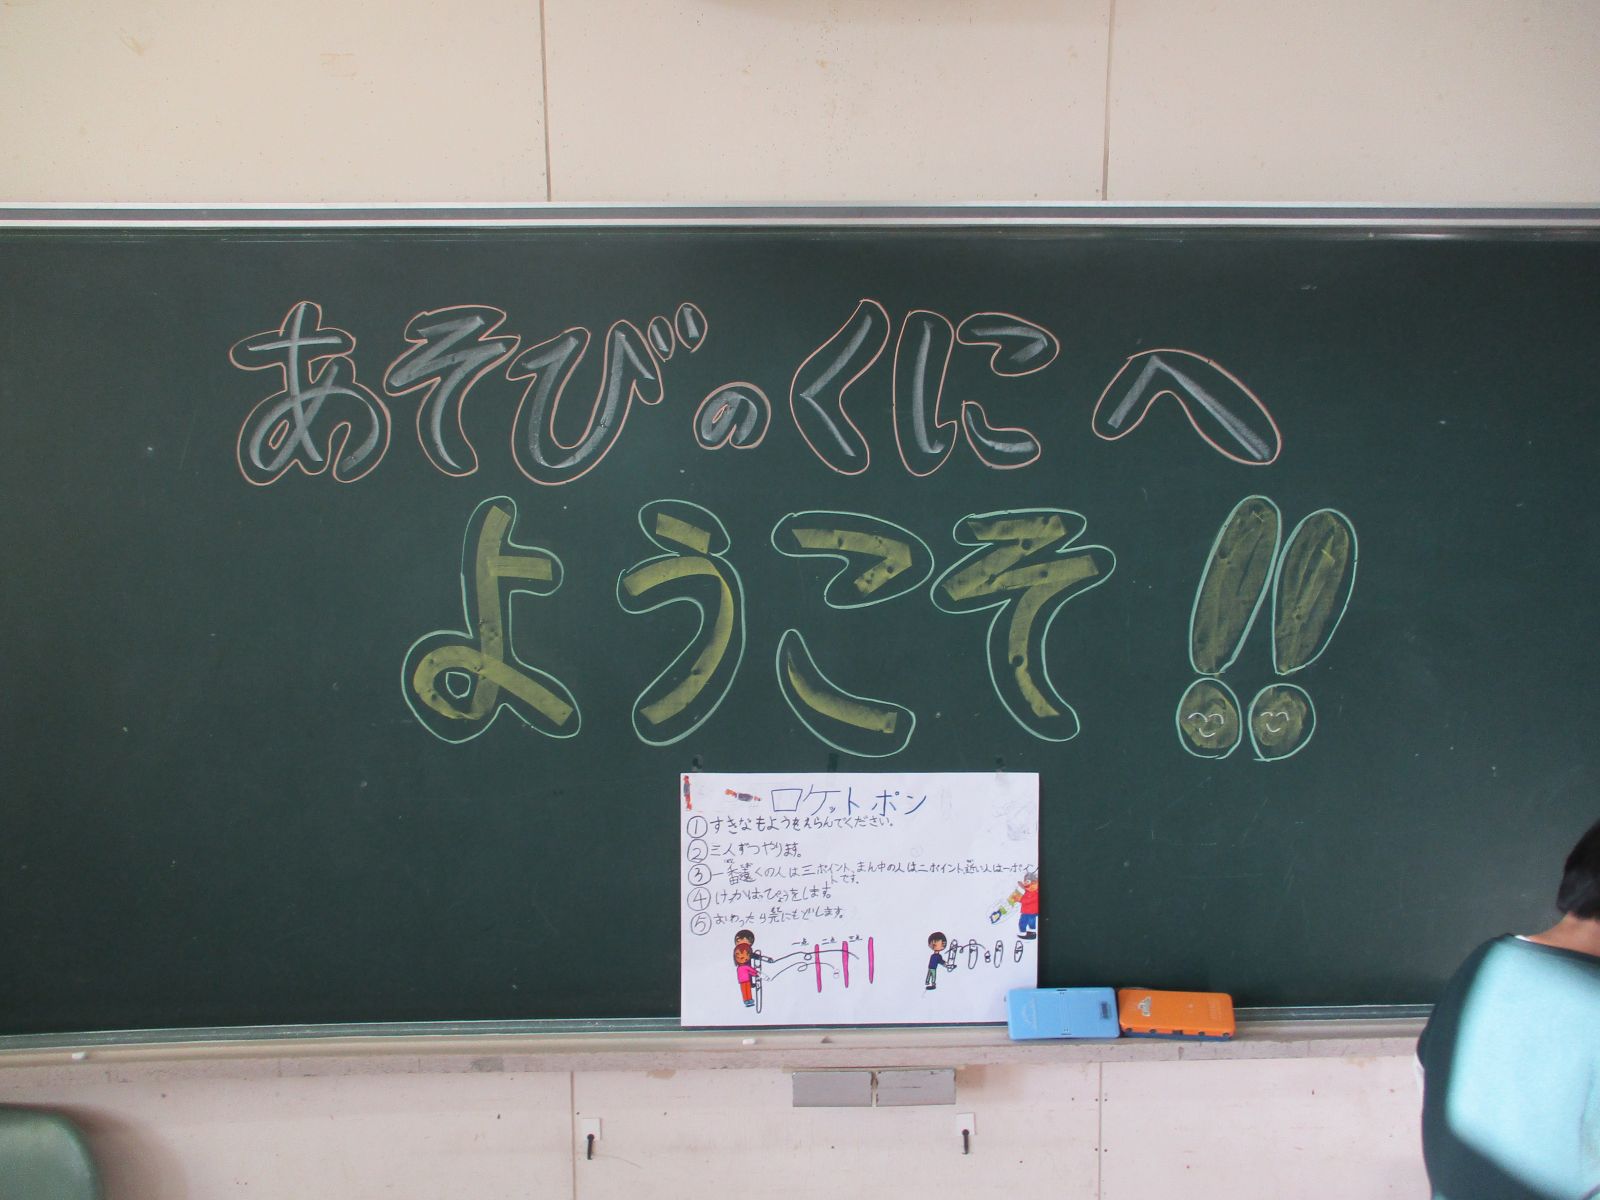 あそびのくにへ
ようこそ!!
ロケットポン
①すきなもようをえらんでください。
②三人ずつやります。
③一番遠くの人は三ポイント、まん中の人は二ポイント、近い人は一ポイントです。
④けっかはっぴょうをします。
⑤おわったら元にもどします。
一点 二点 三点